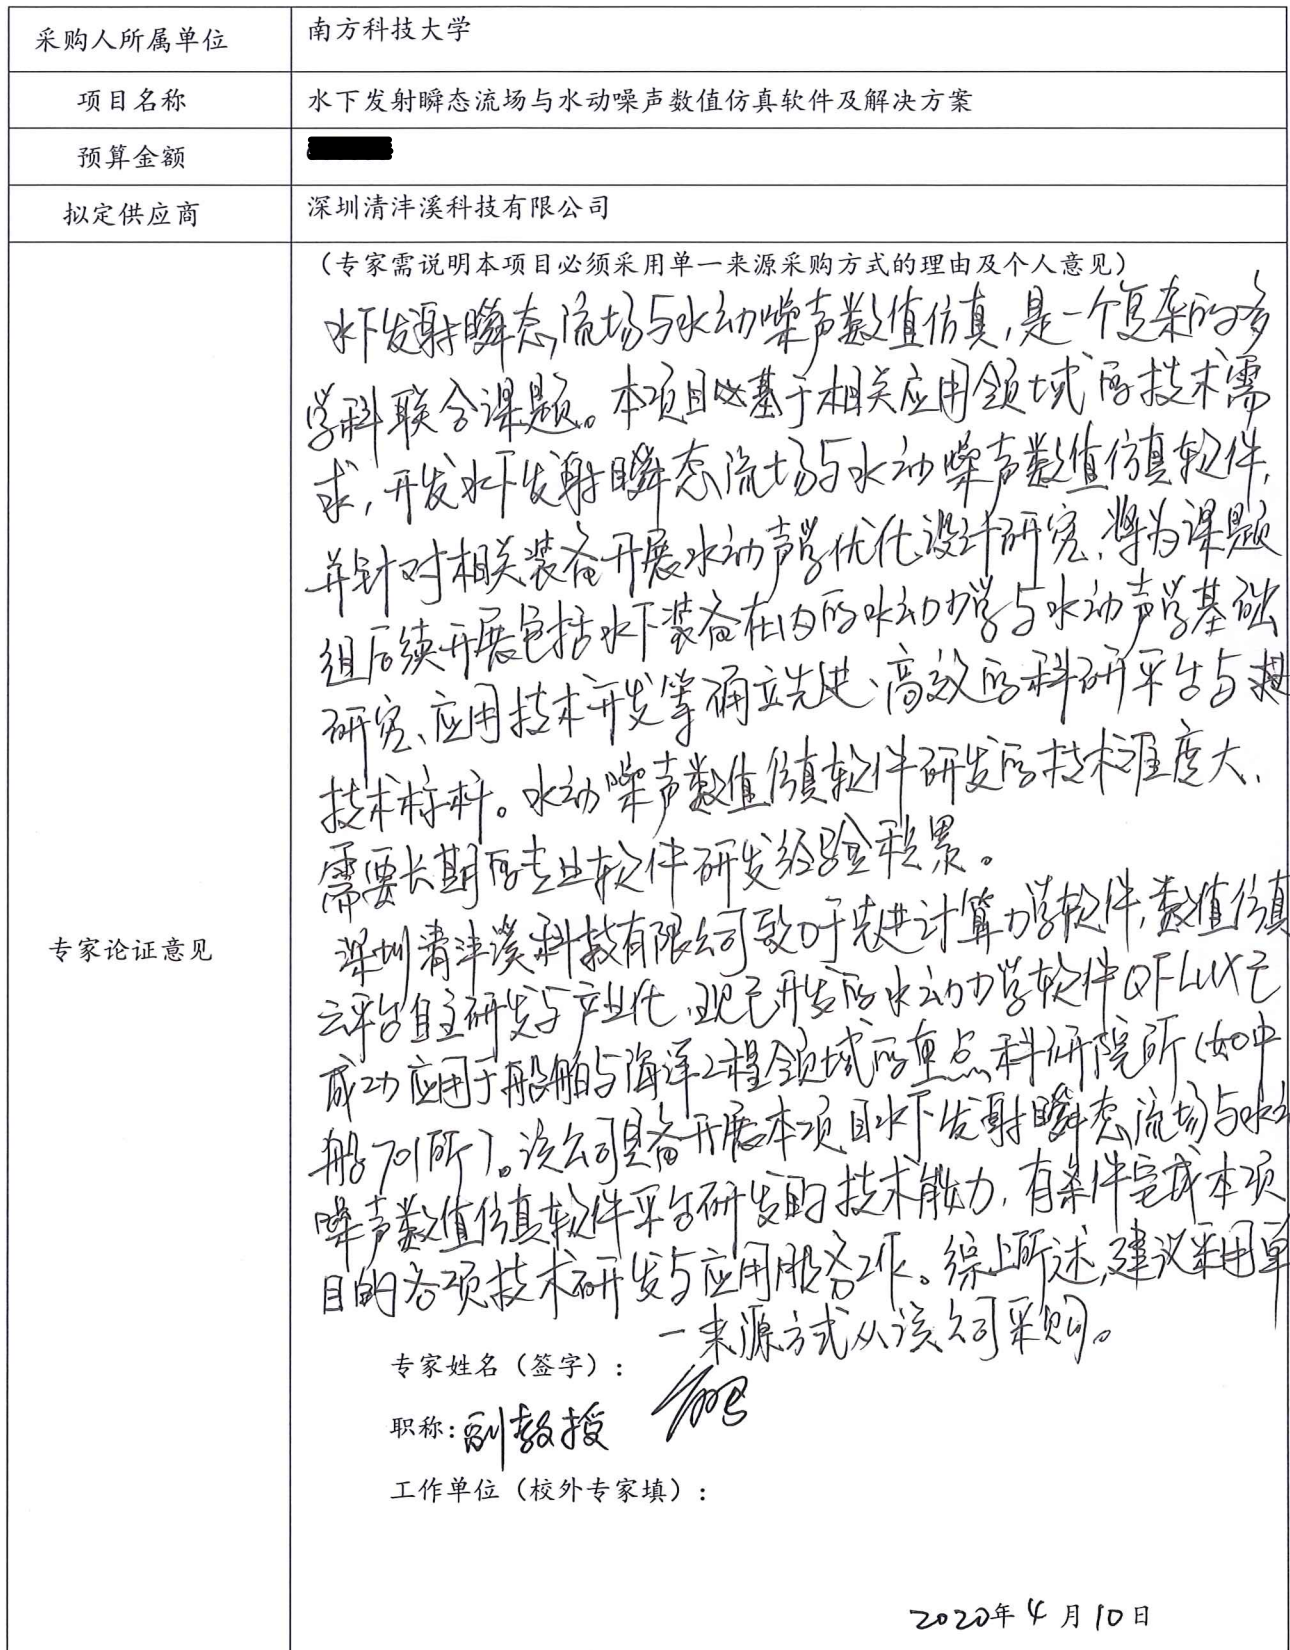 采购人所属单位 南方科技大学
项目名称 水下发射瞬态流场与水动噪声数值仿真软件及解决方案
预算金额
拟定供应商 深圳清沣溪科技有限公司
专家论证意见
（专家需说明本项目必须采用单一来源采购方式的理由及个人意见）
水下发射瞬态流场与水动噪声数值仿真，是一个复杂的多
学科联合课题。本项目基于相关应用领域的技术需
求，开发水下发射瞬态流场与水动噪声数值仿真软件，
并针对相关装备开展水动声学优化设计研究，将为课题
组后续开展包括水下装备在内的水动力学与水动声学基础
研究、应用技术开发等确立先进、高效的科研平台与
技术标杆。水动噪声数值仿真软件研发的技术难度大、
需要长期的专业软件研发经验积累。
深圳清沣溪科技有限公司致力于先进计算力学软件，数值仿真
云平台自主研发与产业化，现已开发的水动力学软件QFLUX已
成功应用于船舶与海洋工程领域的重点科研院所（如中
船701所）。该公司具备开展本项目水下发射瞬态流场与水动
噪声数值仿真软件平台研发的技术能力，有条件完成本项
目的各项技术研发与应用服务工作。综上所述，建议采用单
一来源方式从该公司采购。
专家姓名（签字）：
职称：副教授
工作单位（校外专家填）：
2020年4月10日